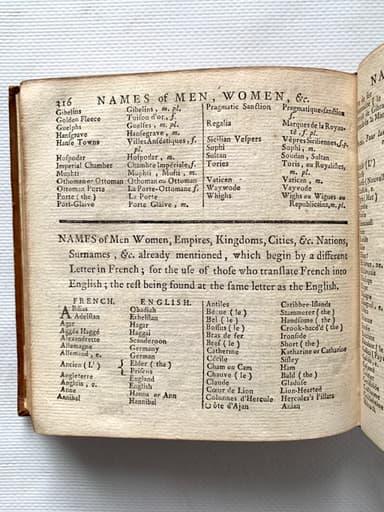 216 NAMES of MEN, WOMEN, &c.
Gibelins Gibelins, m. pl.
Golden Fleece Tuison d'or, f.
Guelphs Guelfes, m. pl.
Hansgrave Hansegrave, m.
Hanse Towns Villes Anséatiques, f. pl.
Hospodar Hospodar, m.
Imperial Chamber Chambre Impériale, f.
Muphti Muphti, Mufti, m.
Othoman or Ottoman Othoman ou Ottoman
Ottoman Porte La Porte-Ottomane, f.
Porte (the) La Porte
Port-Glaive Porte Glaive, m.
Pragmatic Sanction Pragmatique-sanction f.
Regalia Marques de la Royauté, f. pl.
Sicilian Vespers Vêpres Siciliennes, f. p.
Sophi Sophi, m.
Sultan Soudan, Sultan
Tories Toris, ou Royalistes, m. pl.
Vatican Vatican, m.
Waywode Vayvode
Whighs Wighs ou Wigues ou Republicains, m. pl.
NAMES of Men Women, Empires, Kingdoms, Cities, &c. Nations,
Surnames, &c. already mentioned, which begin by a different
Letter in French; for the use of those who translate French into
English; the rest being found at the same letter as the English.
FRENCH. ENGLISH.
Abdias Obadiah
Adelstan Ethelstan
Agar Hagar
Aggée Haggé Haggai
Alexandrette Scanderoon
Allemagne Germany
Allemand, e. German
Ancien (L') Elder (the)
Priscus
Angleterre England
Anglois, e. English
Anne Hanna or Ann
Annibal Hannibal
Antilles Caribbee-Islands
Bègue (le) Stammerer (the)
Bel (le) Handsome (the)
Bossu (le) Crook-back'd (the)
Bras de fer Ironside
Bref (le) Short (the)
Catherine Katharine or Catharine
Cécile Sisley
Cham ou Cam Ham
Chauve (le) Bald (the)
Claude Gladuse
Cœur de Lion Lion-Hearted
Colonnes d'Hercule Hercules's Pillars
Côte d'Ajan Axian
NA